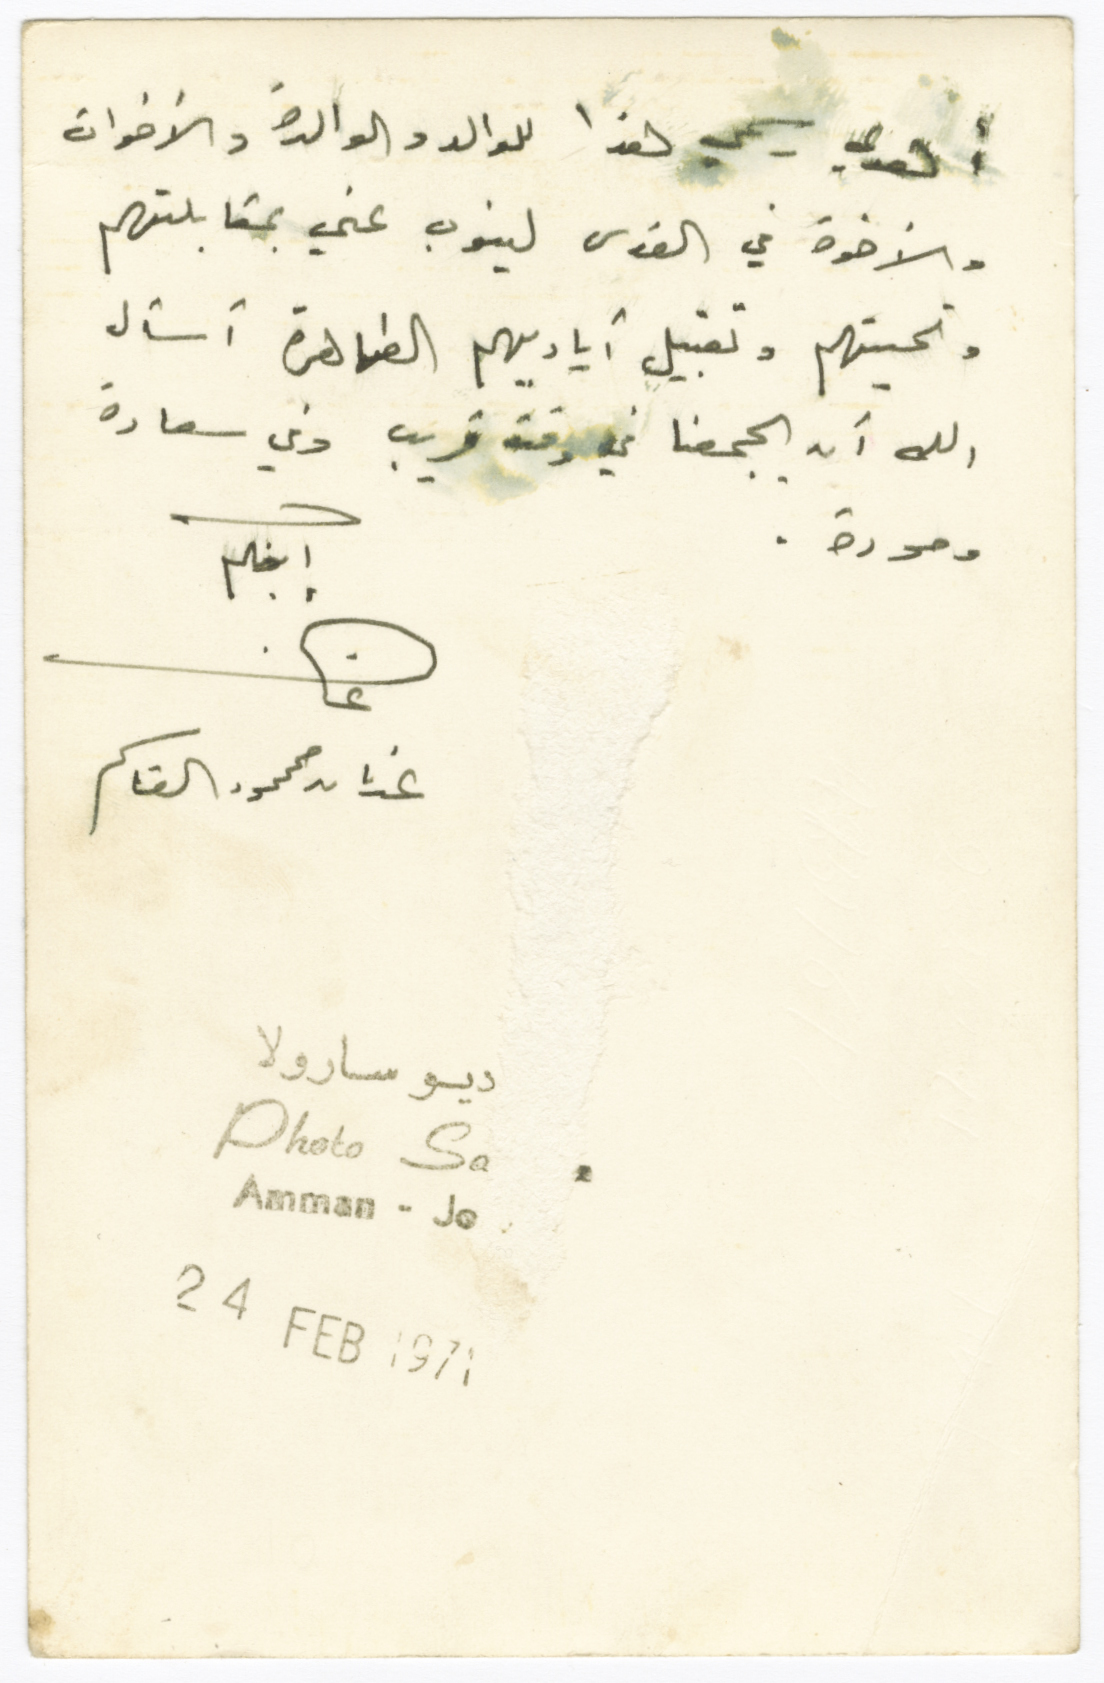 أهدي رسمي هذا للوالد والوالدة والأخوات
والأخوة في القدس لينوب عني بمقابلتهم
وتحيتهم وتقبيل أياديهم الطاهرة أسأل
الله أن يجمعنا في وقت قريب وفي سعادة
إبنكم
محمود القاسم
ديو سارولا
Photo Sa
Amman - Jo
24 FEB 1971